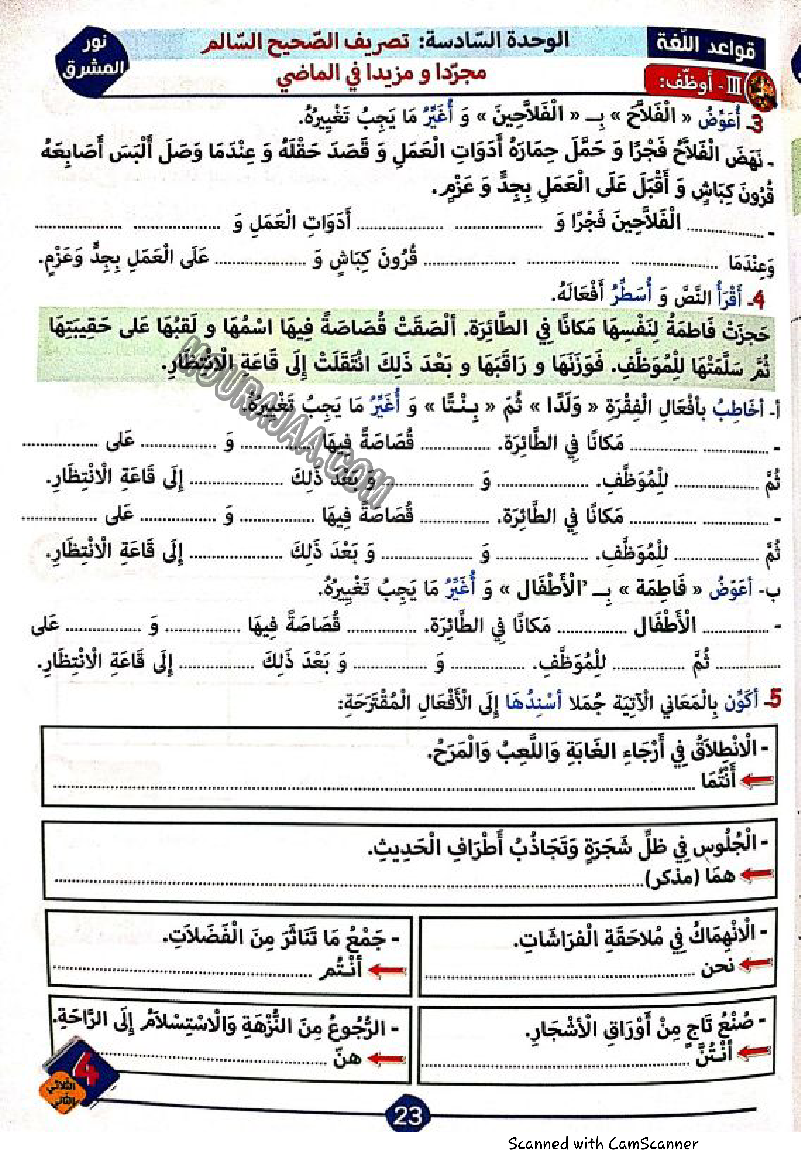 قواعد اللّغة
الوحدة السّادسة: تصريف الصّحيح السّالم
نور المشرق
III - أوظّف:
مجرّدا و مزيدا في الماضي
3- أُعَوِّضُ « الْفَلاَّحَ » بِـ « الْفَلاَّحِينَ » وَ أُغَيِّرُ مَا يَجِبُ تَغْيِيرُهُ.
- نَهَضَ الْفَلاَّحُ فَجْرًا وَ حَمَّلَ حِمَارَهُ أَدَوَاتِ الْعَمَلِ وَ قَصَدَ حَقْلَهُ وَ عِنْدَمَا وَصَلَ أَلْبَسَ أَصَابِعَهُ
قُرُونَ كِبَاشٍ وَ أَقْبَلَ عَلَى الْعَمَلِ بِجِدٍّ وَ عَزْمٍ.
- .................. الْفَلاَّحِينَ فَجْرًا وَ .................. .................. أَدَوَاتِ الْعَمَلِ وَ .................. ..................
وَعِنْدَمَا .................. .................. .................. قُرُونَ كِبَاشٍ وَ .................. عَلَى الْعَمَلِ بِجِدٍّ وَعَزْمٍ.
4- أَقْرَأُ النَّصَّ وَ أُسَطِّرُ أَفْعَالَهُ.
حَجَزَتْ فَاطِمَةُ لِنَفْسِهَا مَكَانًا فِي الطَّائِرَةِ. أَلْصَقَتْ قُصَاصَةً فِيهَا اسْمُهَا وَ لَقَبُهَا عَلَى حَقِيبَتِهَا
ثُمَّ سَلَّمَتْهَا لِلْمُوَظَّفِ. فَوَزَنَهَا وَ رَاقَبَهَا وَ بَعْدَ ذَلِكَ انْتَقَلَتْ إِلَى قَاعَةِ الْاِنْتِظَارِ.
MOURAJAA.COM
أ- أخَاطِبُ بأَفْعَالِ الْفِقْرَةِ « وَلَدًا » ثُمَّ « بِنْتًا » وَ أُغَيِّرُ مَا يَجِبُ تَغْيِيرُهُ.
- .................. .................. مَكَانًا فِي الطَّائِرَةِ. .................. قُصَاصَةً فِيهَا .................. وَ .................. عَلى ..................
ثُمَّ .................. للْمُوَظَّفِ. .................. وَ .................. وَ بَعْدَ ذَلِكَ .................. إِلَى قَاعَةِ الْاِنْتِظَارِ.
- .................. .................. مَكَانًا فِي الطَّائِرَةِ. .................. قُصَاصَةً فِيهَا .................. وَ .................. عَلَى ..................
ثُمَّ .................. للْمُوَظَّفِ. .................. وَ .................. وَ بَعْدَ ذَلِكَ .................. إِلَى قَاعَةِ الْاِنْتِظَارِ.
ب- أعَوِّضُ « فَاطِمَة » بِـ "الْأَطْفَال » وَ أُغَيِّرُ مَا يَجِبُ تَغْيِيرُهُ.
- .................. الْأَطْفَال .................. مَكَانًا فِي الطَّائِرَةِ. .................. قُصَاصَةً فِيهَا .................. وَ .................. عَلى
.................. ثُمَّ .................. للْمُوَظَّفِ. .................. وَ .................. وَ بَعْدَ ذَلِكَ .................. إِلَى قَاعَةِ الْاِنْتِظَارِ.
5- أكَوِّن بِالْمَعَانِي الْآتِيَةِ جُمَلا أسْنِدُهَا إِلَى الْأَفْعَالِ الْمُقْتَرَحَةِ:
- الْاِنْطِلاَقُ فِي أَرْجَاءِ الغَابَةِ وَاللَّعِبُ وَالْمَرَحُ.
أَنْتُمَا ..................
- الْجُلُوس فِي ظلِّ شَجَرَةٍ وَتَجَاذُبُ أَطْرَافِ الْحَدِيثِ.
همَا (مذكر)..................
- الْاِنْهِمَاكُ فِي مُلاَحَقَةِ الْفرَاشَاتِ.
نحن ..................
- جَمْعُ مَا تَنَاثَرَ مِنَ الْفَضَلاَتِ.
أنْتُم ..................
- صُنْعُ تَاجٍ مِنْ أَوْرَاقِ الْأشْجَارِ.
أنْتُنَّ ..................
- الرُّجُوعُ مِنَ النُّزْهَةِ وَالْاِسْتِسْلاَمُ إِلَى الرَّاحَةِ.
هنّ ..................
4
الثلاثي الثاني
23
Scanned with CamScanner